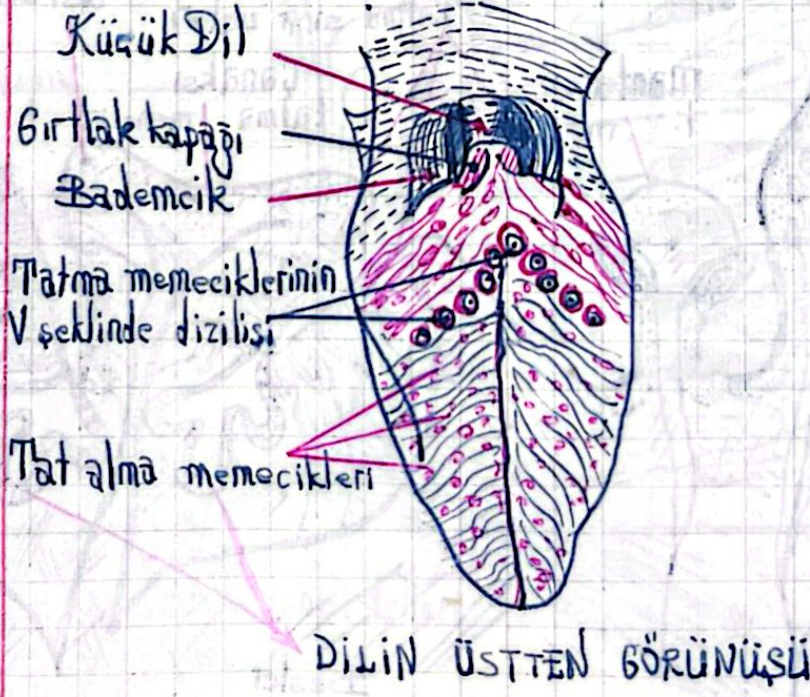 Küçük Dil
Gırtlak kapağı
Bademcik
Tatma memeciklerinin
V şeklinde dizilişi
Tat alma memecikleri
DİLİN ÜSTTEN GÖRÜNÜŞÜ